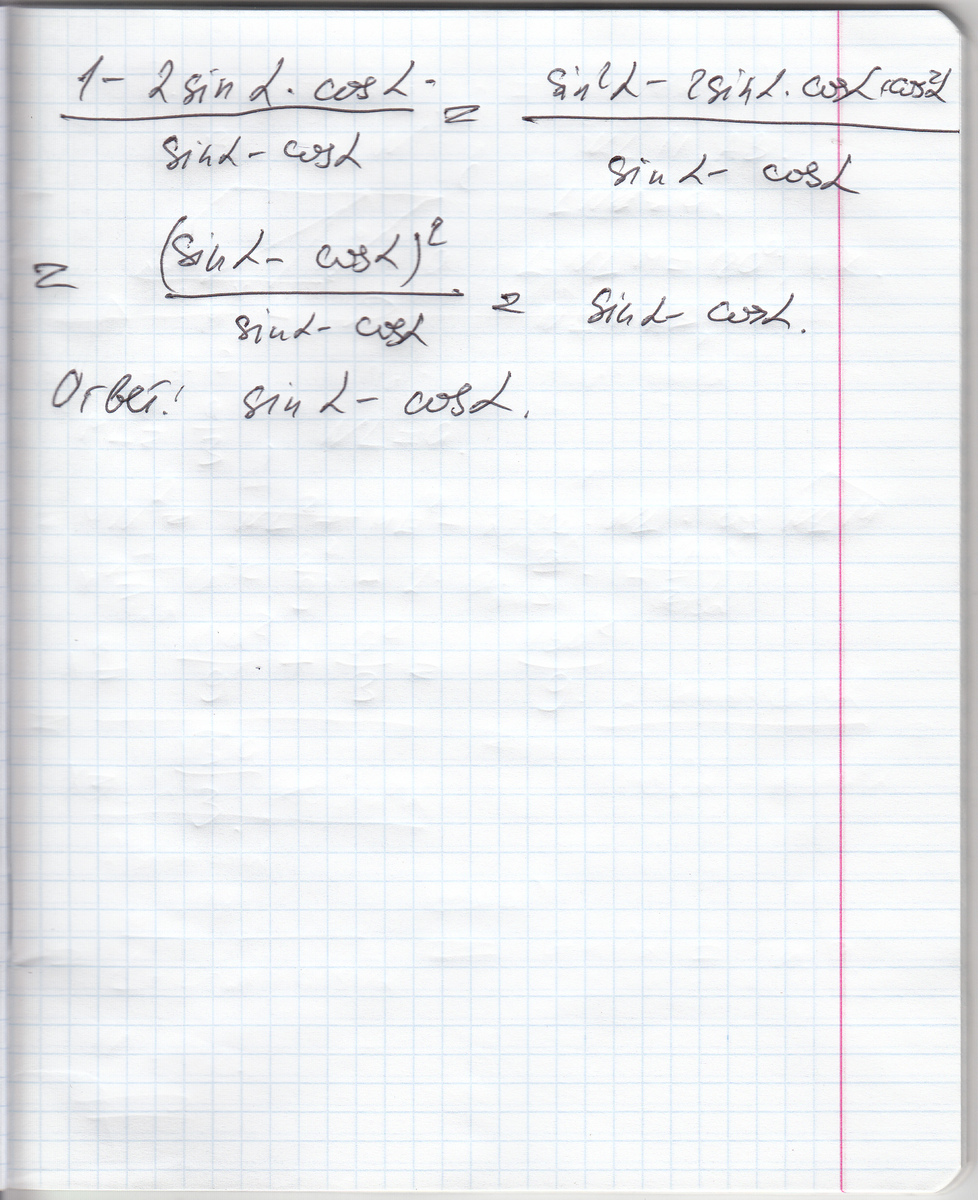 1 - 2 sin α · cos α = sin²α - 2 sin α · cos α + cos²α
sin α - cos α sin α - cos α
= (sin α - cos α)² = sin α - cos α.
sin α - cos α
Ответ: sin α - cos α.